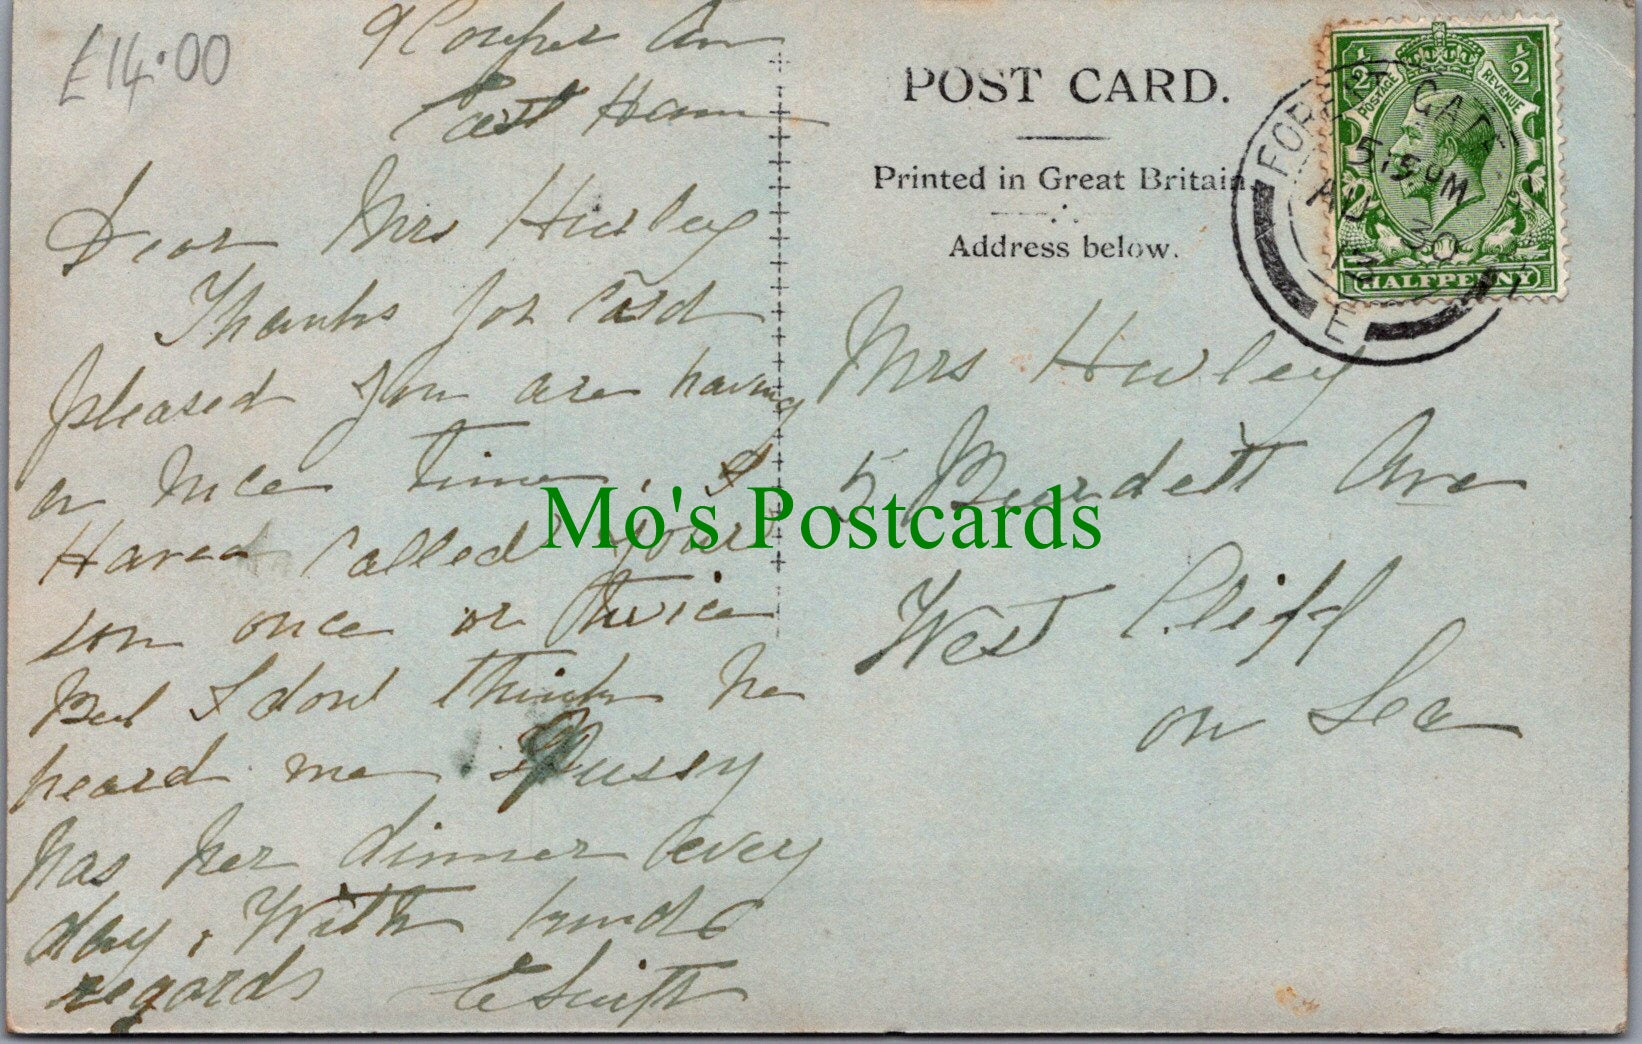 £14.00
9 Cowper Av
East Ham
Dear Mrs Hurley
Thanks for Card
pleased you are having
a nice time. I
Have called your
son once or twice
But I dont think he
heard me. Pussy
has her dinner every
day. With kind
regards E Swift
POST CARD.
Printed in Great Britain.
Address below.
Mrs Hurley
5 Burdett Ave
West Cliff
on Sea
FOREST GATE
5.15 PM
AU 30
13
E
½ ½
POSTAGE REVENUE
HALFPENNY
Mo's Postcards